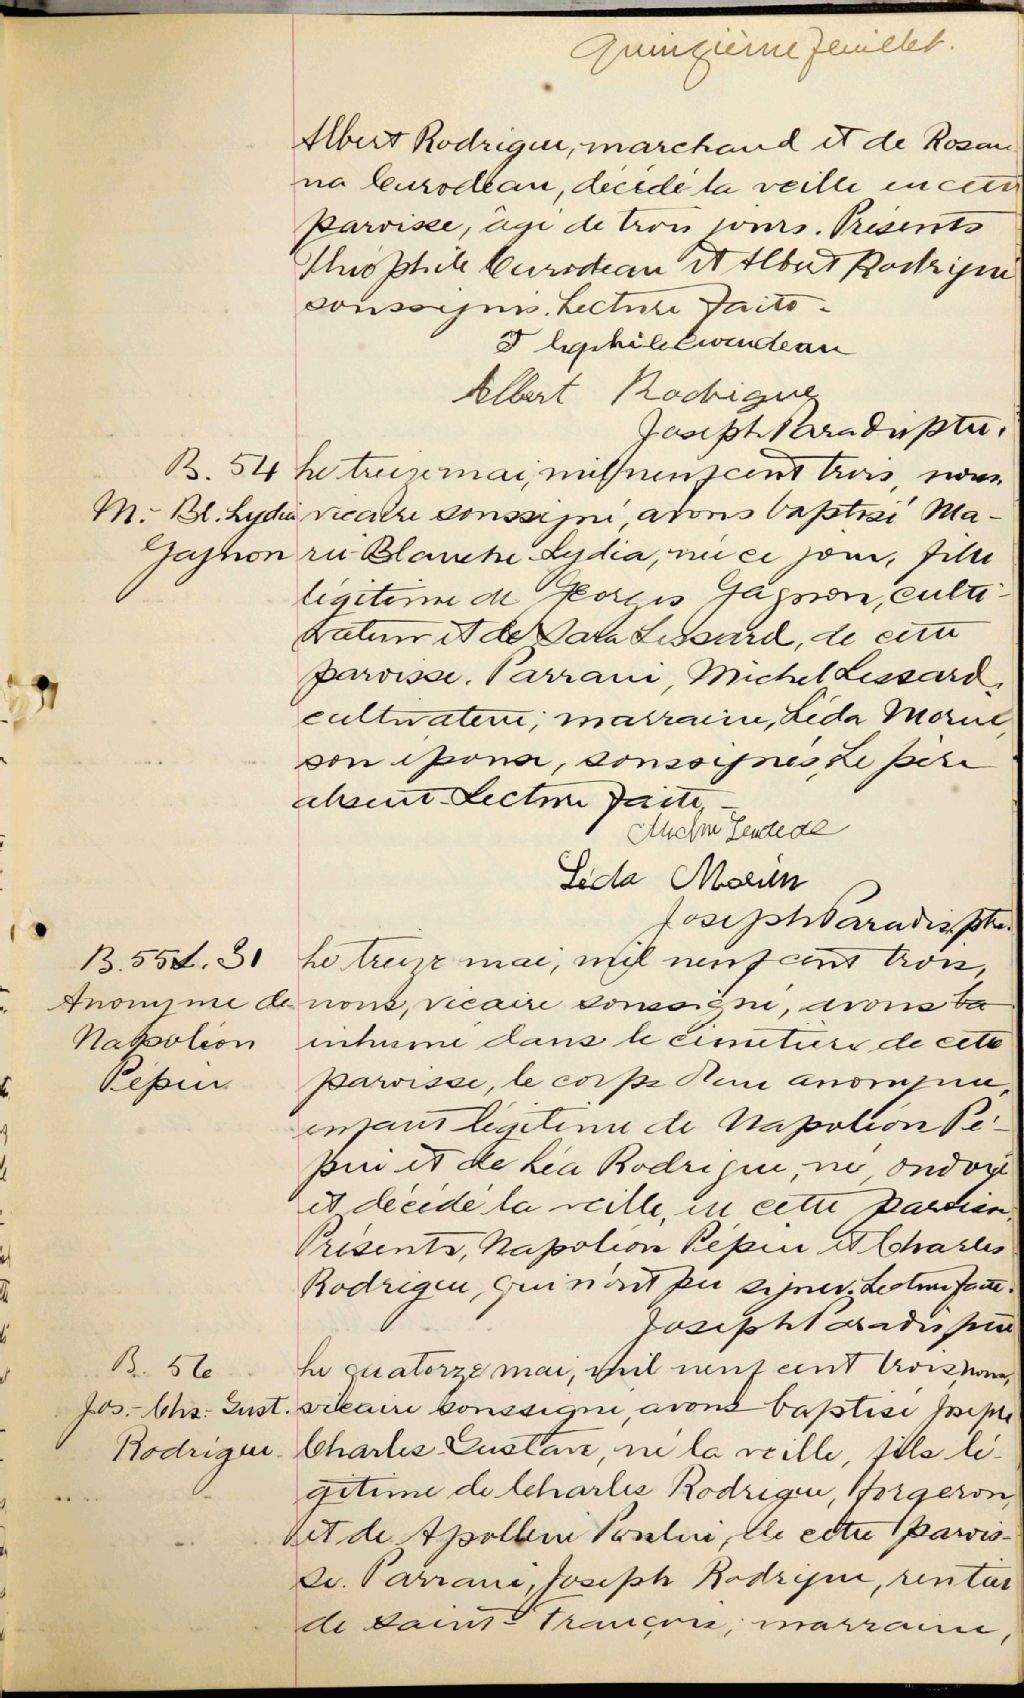 Quinzième feuillet.
Albert Rodrigue, marchand et de Rosan
na Curodeau, décédé la veille en cette
paroisse, âgé de trois jours. Présents
Théophile Curodeau et Albert Rodrigue
soussignés. Lecture faite.
Théophile Curodeau
Albert Rodrigue
Joseph Paradis ptre.
B. 54
M.- Bl. Lydia
Gagnon
Le treize mai, mil neuf cent trois, nous
vicaire soussigné, avons baptisé Ma-
rie-Blanche Lydia, née ce jour, fille
légitime de Georges Gagnon, culti-
vateur et de Sara Lessard, de cette
paroisse. Parrain, Michel Lessard,
cultivateur; marraine, Léda Morin,
son épouse, soussignés, Le père
absent. Lecture faite.
Léda Morin
Joseph Paradis ptre.
B. 55 S. 31
Anonyme de
Napoléon
Pépin
Le treize mai, mil neuf cent trois,
nous, vicaire soussigné, avons ba
inhumé dans le cimetière de cette
paroisse, le corps d'un anonyme,
enfant légitime de Napoléon Pé-
pin et de Léa Rodrigue, né, ondoyé
et décédé la veille, en cette paroisse.
Présents, Napoléon Pépin et Charles
Rodrigue, qui n'ont pu signer. Lecture faite.
Joseph Paradis ptre
B. 56
Jos.- Chs.- Gust.
Rodrigue
Le quatorze mai, mil neuf cent trois, nous,
vicaire soussigné, avons baptisé Joseph
Charles Gustave, né la veille, fils lé-
gitime de Charles Rodrigue, forgeron,
et de Apolline Poulin, de cette parois-
se. Parrain, Joseph Rodrigue, rentier
de Saint-François; marraine,